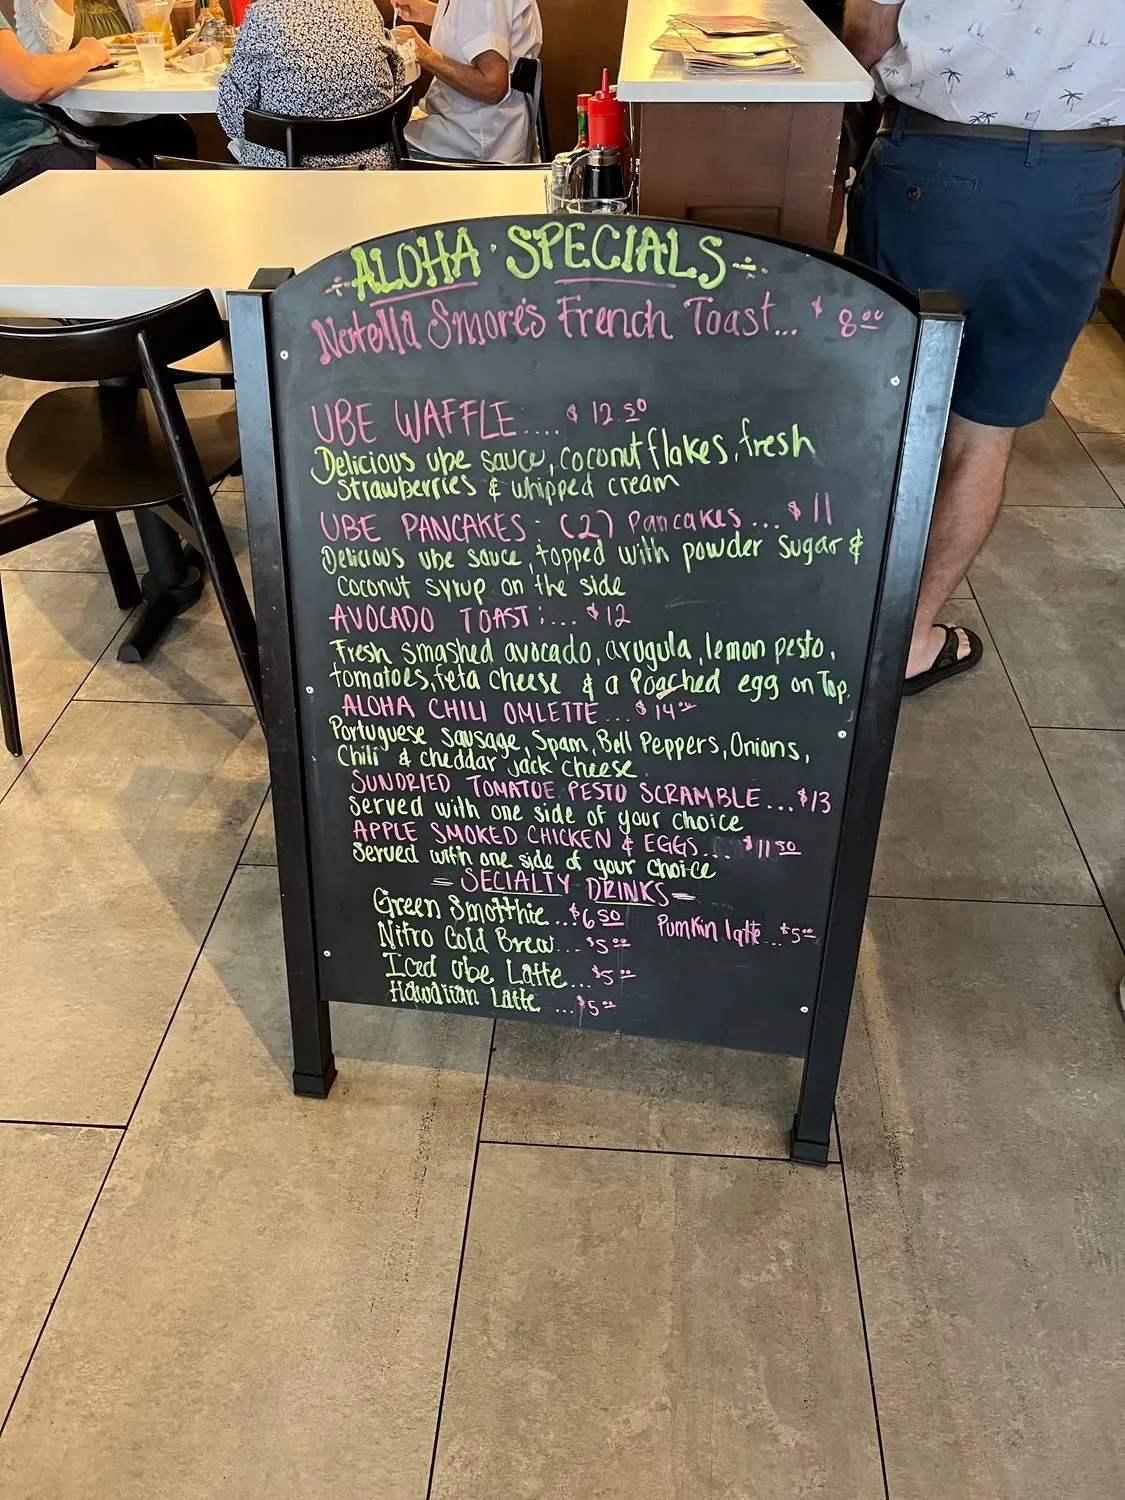 ALOHA · SPECIALS
Nutella Smore's French Toast... $8.00
UBE WAFFLE.... $12.50
Delicious ube sauce, coconut flakes, fresh
strawberries & whipped cream
UBE PANCAKES: (2) Pancakes... $11
Delicious ube sauce, topped with powder sugar &
Coconut syrup on the side
AVOCADO TOAST:... $12
Fresh smashed avocado, arugula, lemon pesto,
tomatoes, feta cheese & a Poached egg on Top.
ALOHA CHILI OMLETTE... $14.00
Portuguese sausage, Spam, Bell Peppers, Onions,
Chili & cheddar jack cheese
SUNDRIED TOMATOE PESTO SCRAMBLE...$13
Served with one side of your choice
APPLE SMOKED CHICKEN & EGGS... $11.50
Served with one side of your choice
= SECIALTY DRINKS =
Green Smotthie...$6.50 Pumkin latte...$5.00
Nitro Cold Brew...$5.00
Iced Ube Latte...$5.00
Hawaiian Latte ...$5.00